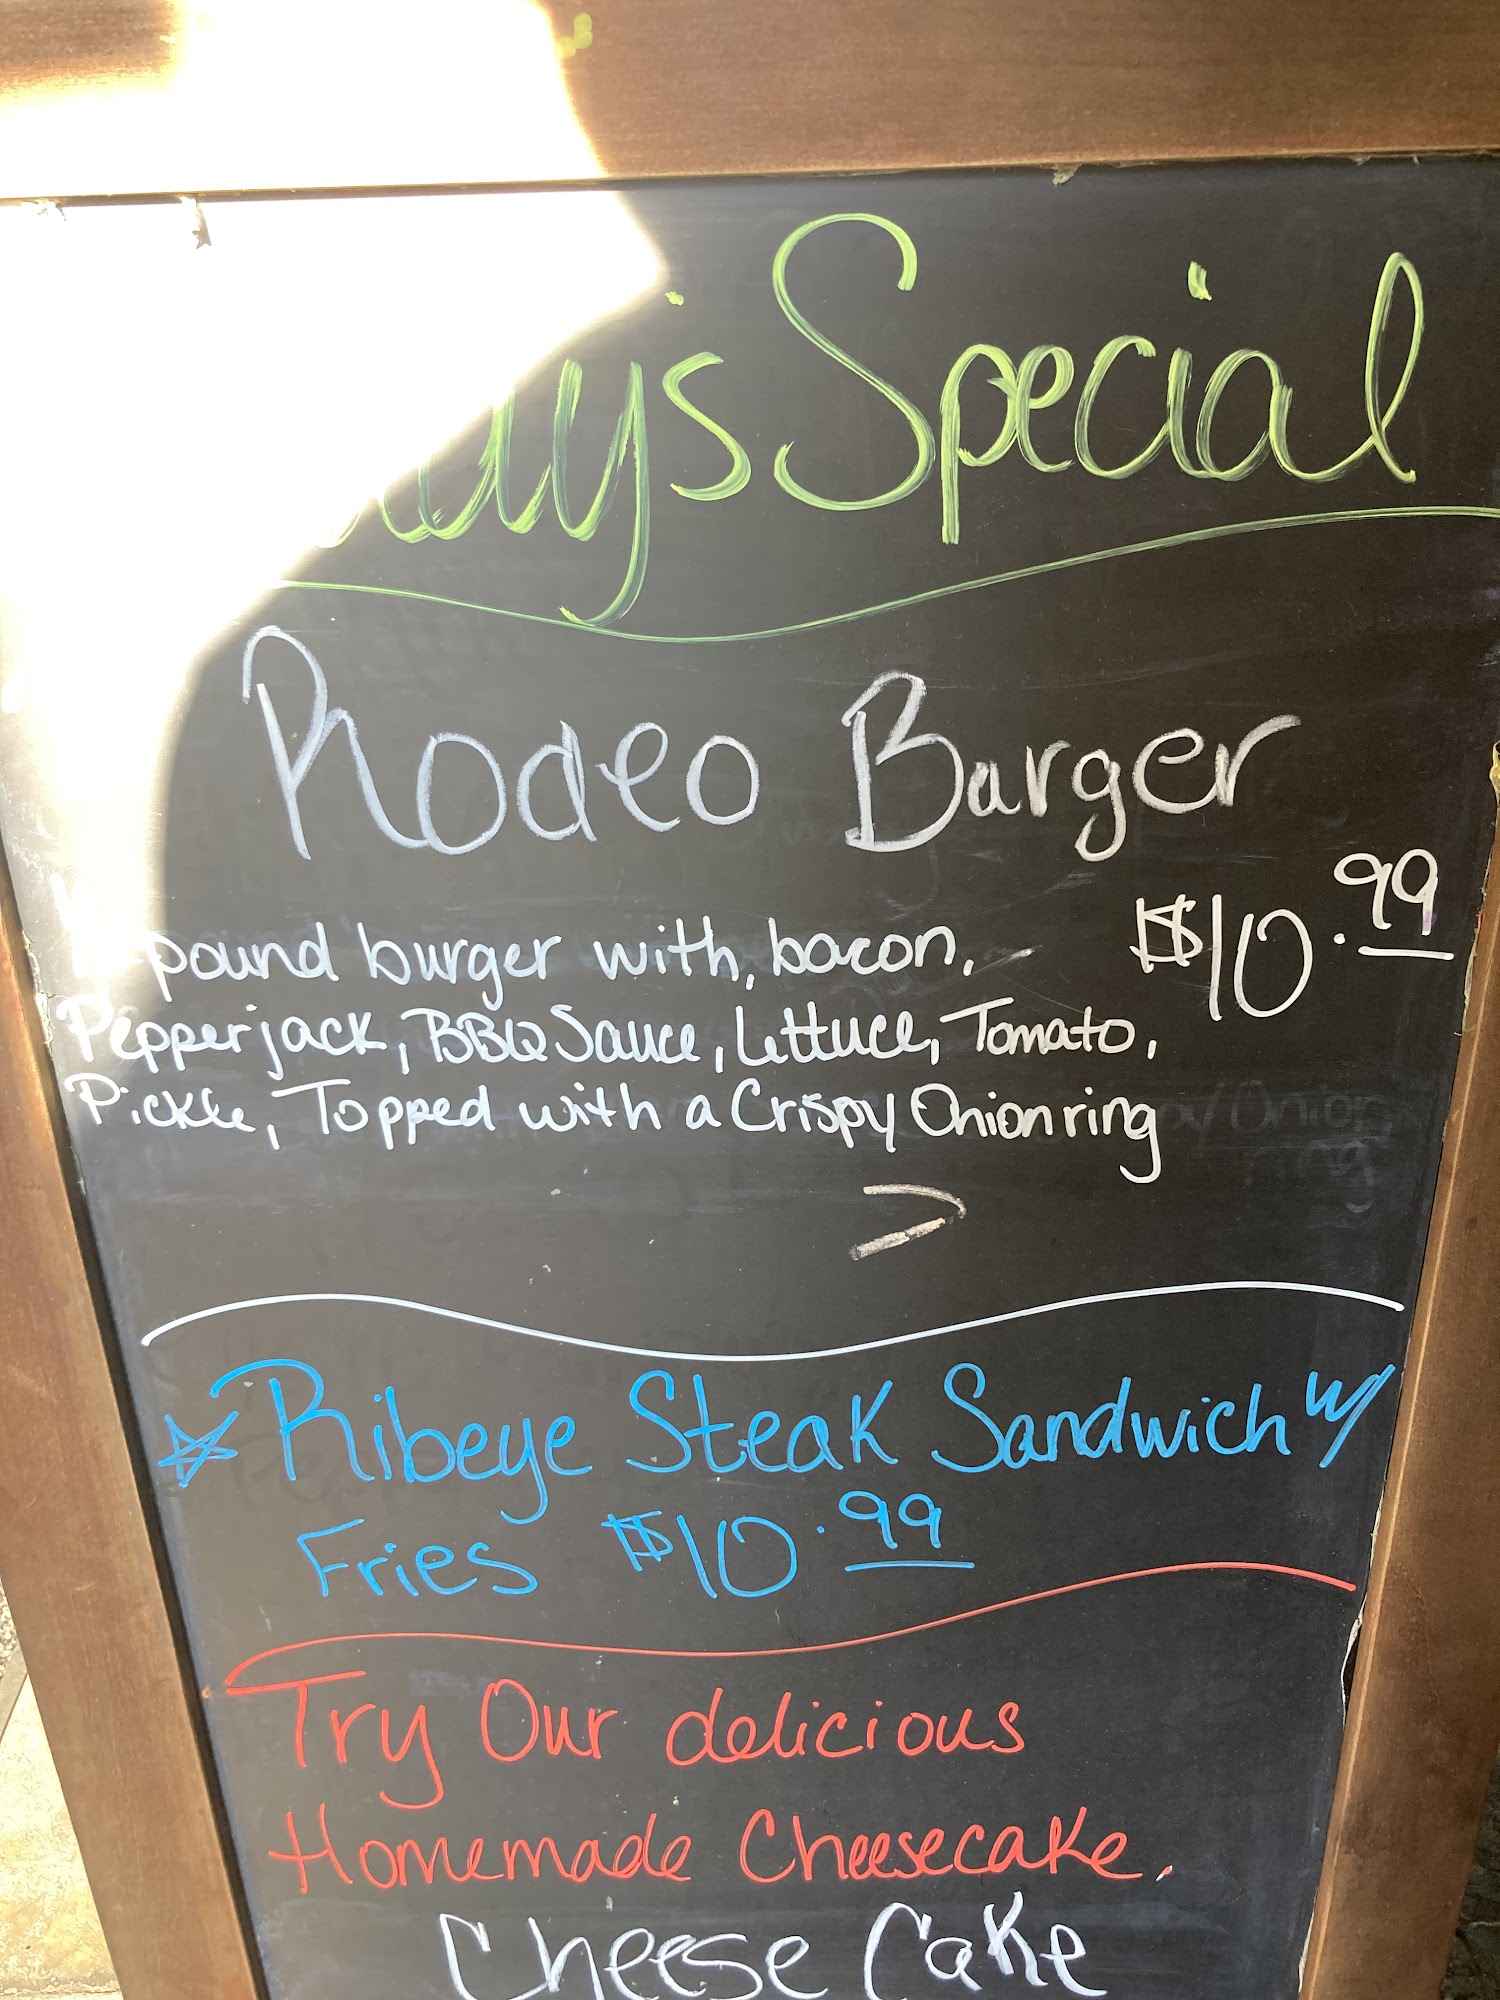 Special
Rodeo Burger
$10.99
pound burger with, bacon,
Pepperjack, BBQ Sauce, Lettuce, Tomato,
Pickle, Topped with a Crispy Onion ring
☆ Ribeye Steak Sandwich w/
Fries $10.99
Try Our delicious
Homemade Cheesecake.
Cheese Cake